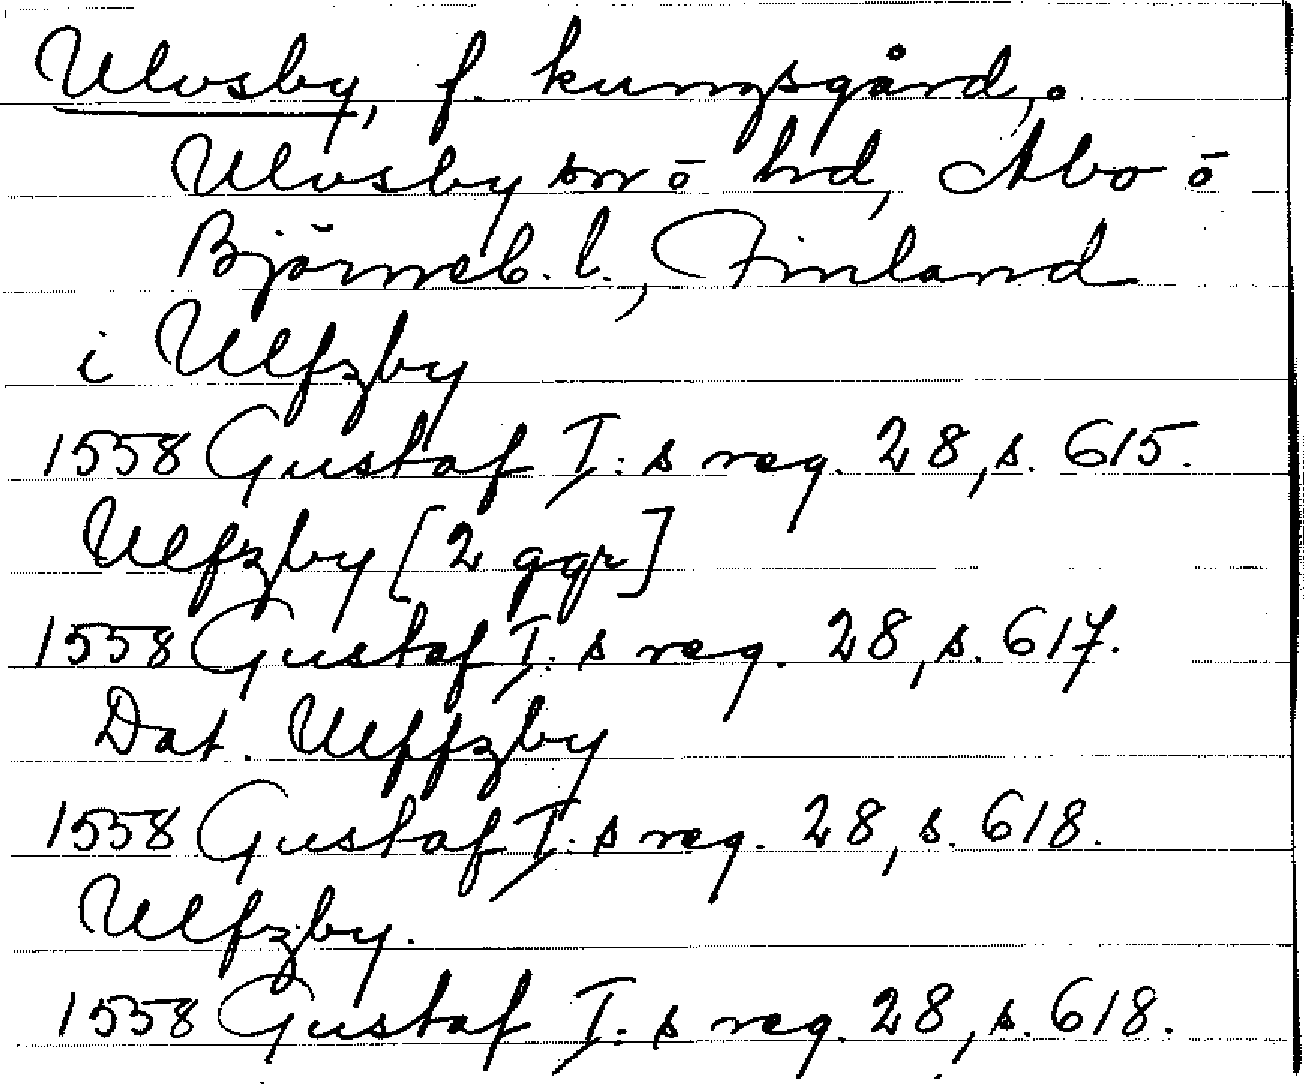 Ulvsby, f. kungsgård,
Ulvsby sn o hd, Åbo o
Björneb. l., Finland
i Ulfzby
1558 Gustaf I:s reg. 28, s. 615.
Ulfzby [2 ggr]
1558 Gustaf I:s reg. 28, s. 617.
Dat. Ulffzby
1558 Gustaf I:s reg. 28, s. 618.
Ulfzby.
1558 Gustaf I:s reg. 28, s. 618.